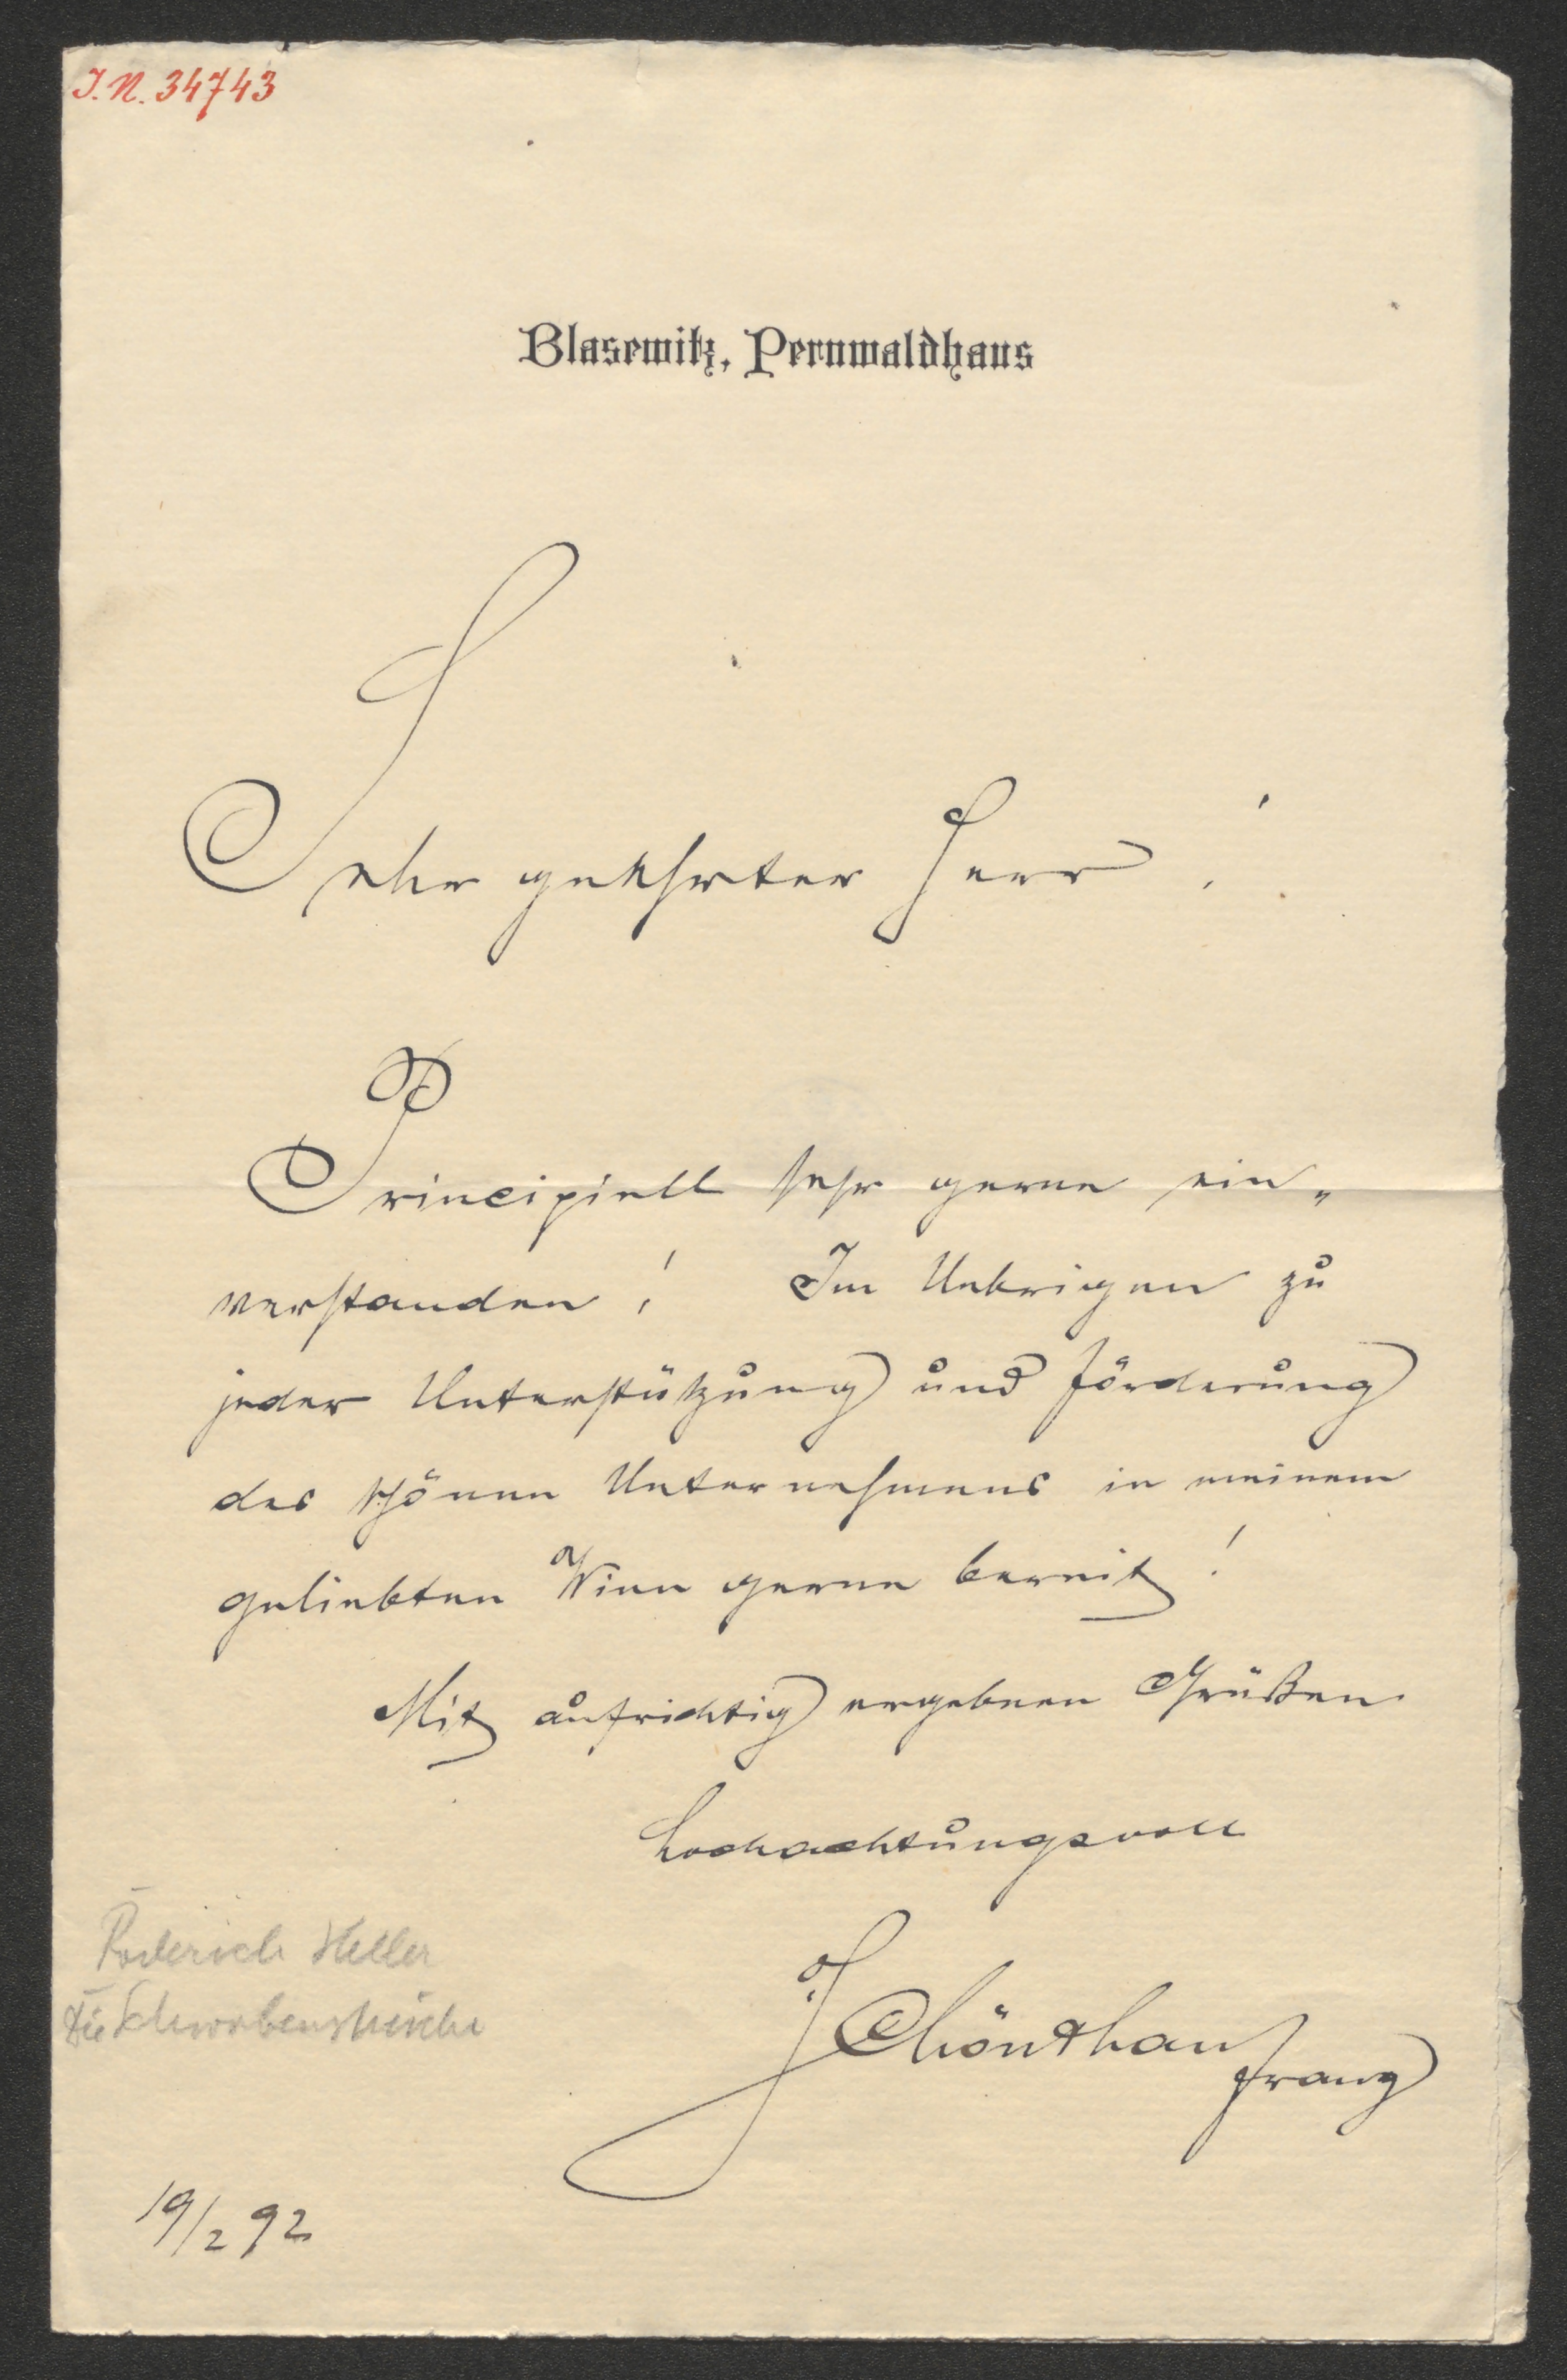 J.N. 34743
Blasewitz, Pernwaldhaus
Sehr geehrter Herr!
Principiell sehr gerne ein„
verstanden! Im Uebrigen zu
jeder Unterstützung und Förderung
des schönen Unternehmens in meinem
geliebten Wien gerne bereit!
Mit aufrichtig ergebnen Grüßen
hochachtungsvoll
Roderich Heller
Die Schwabenstreiche
Schönthan
Franz
19/2 92